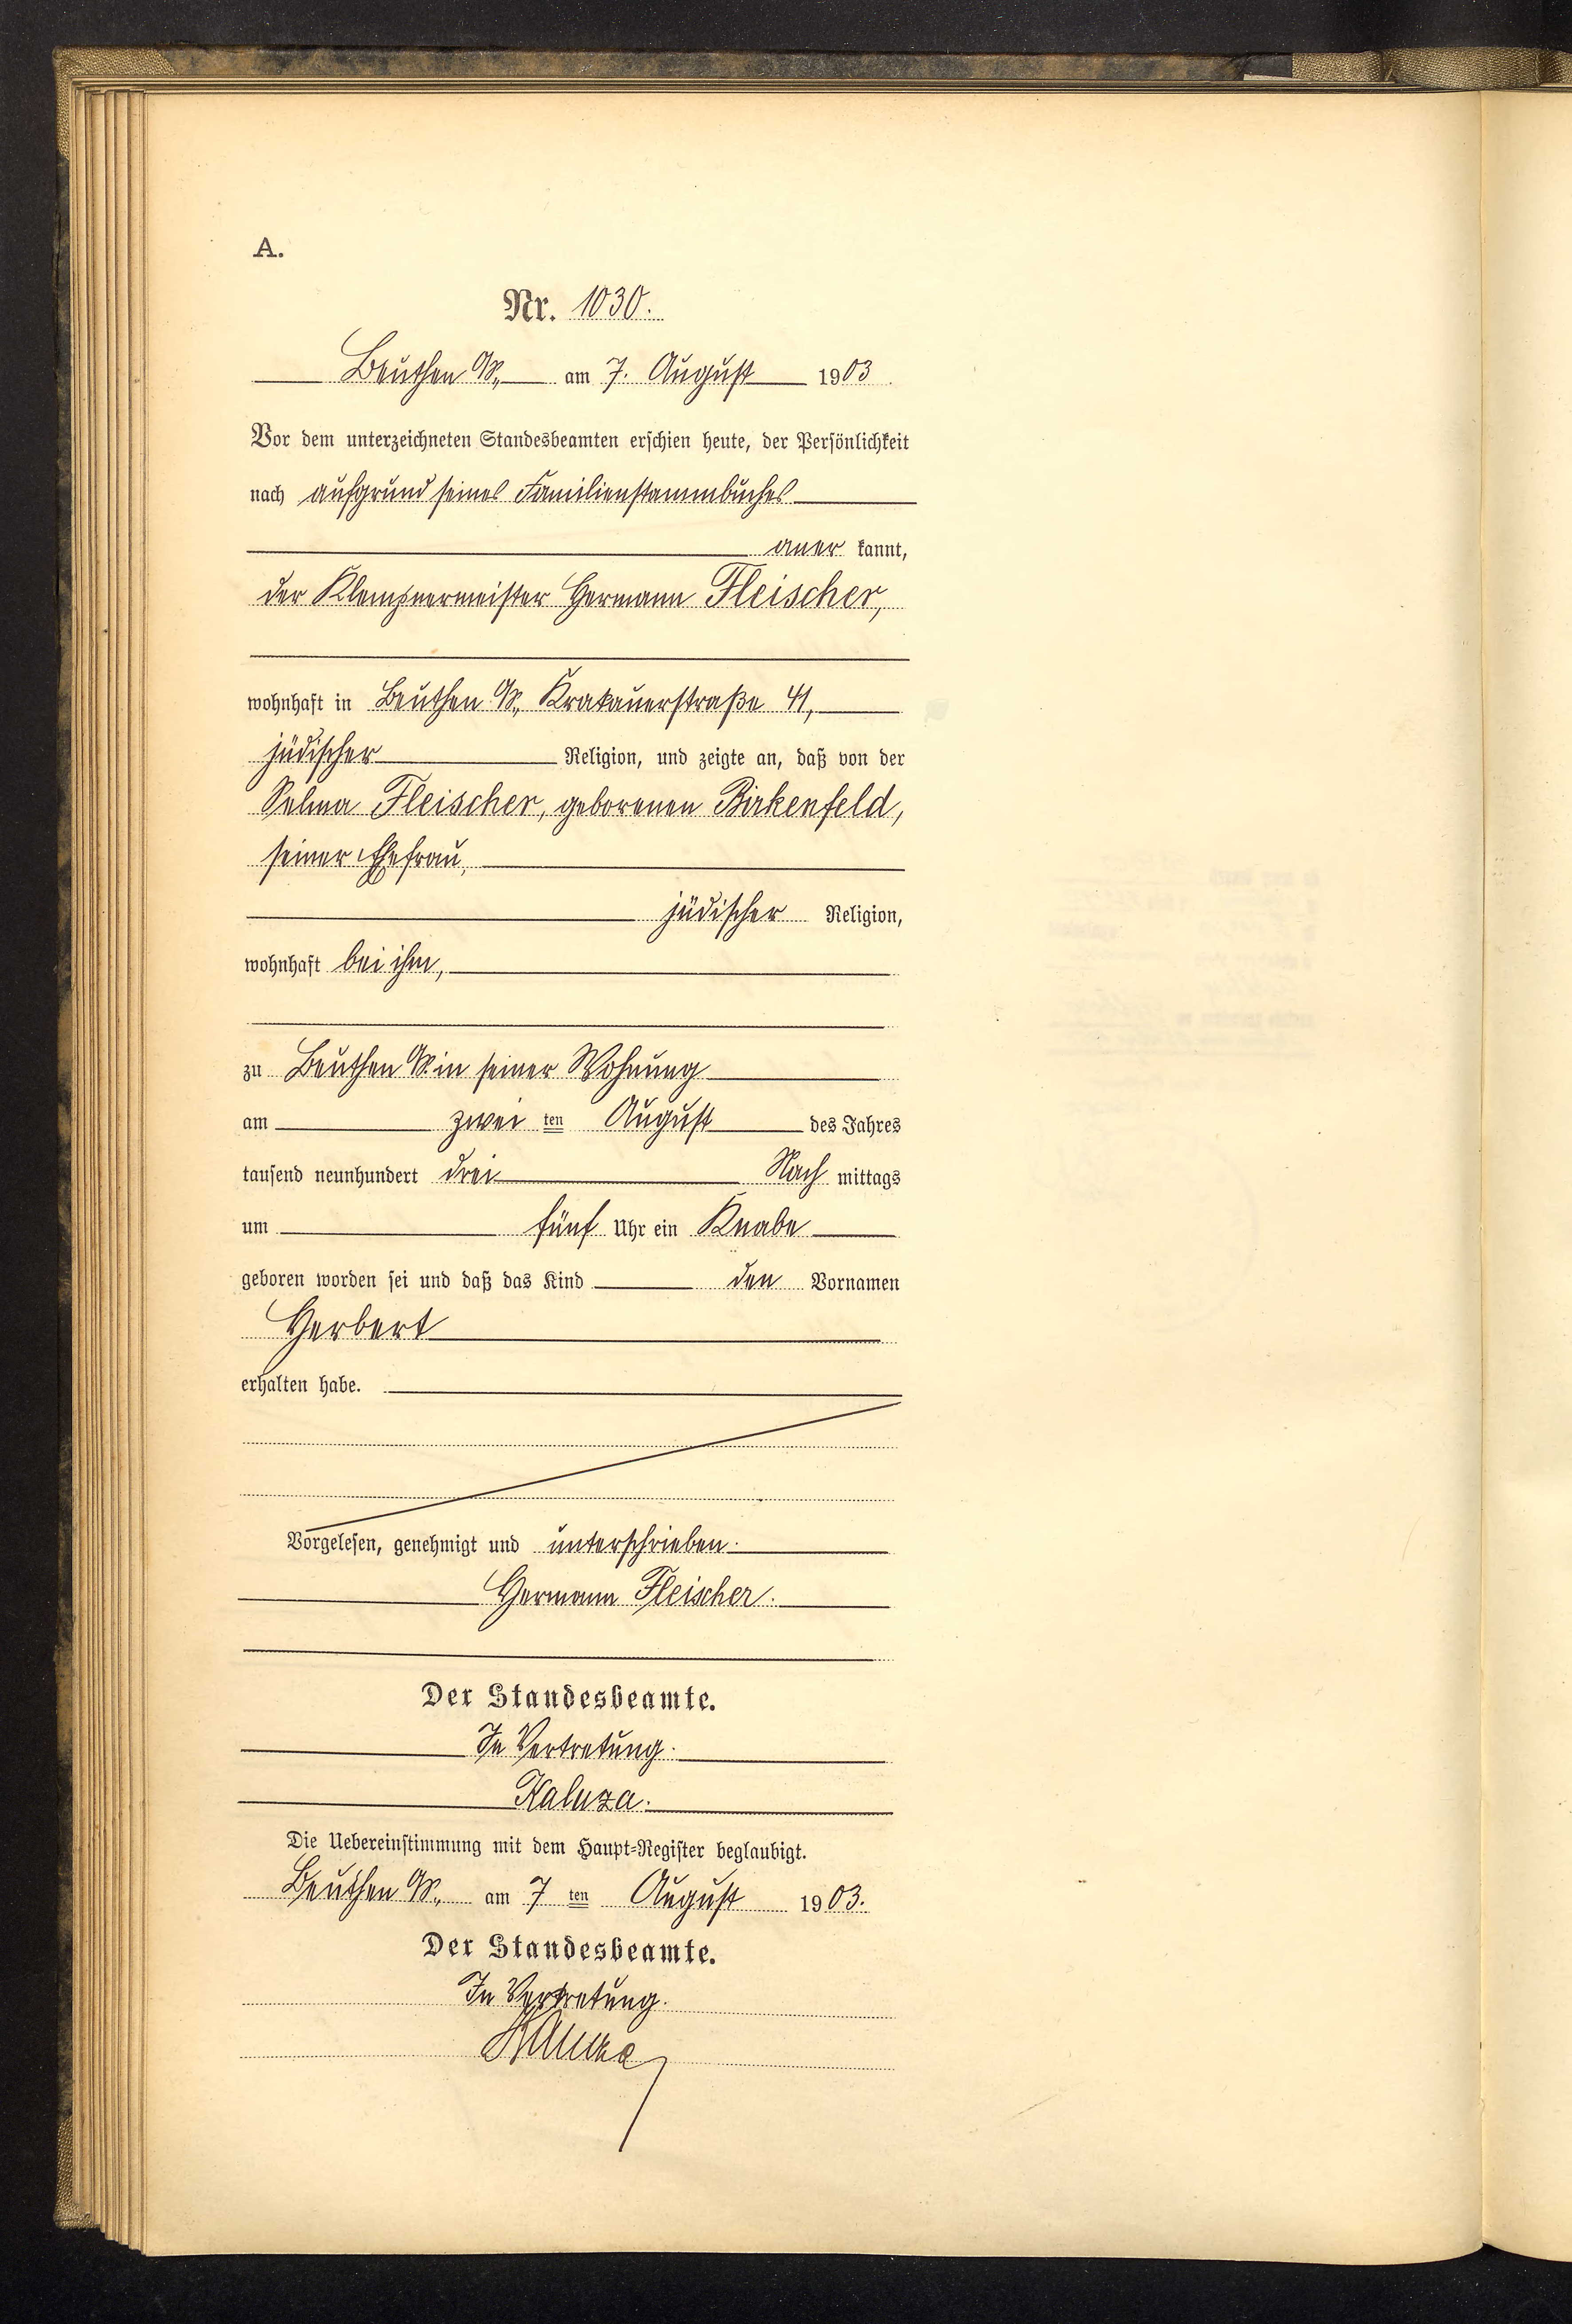 A.
Nr. 1030.
Beuthen O/S., am 7. August 1903.
Vor dem unterzeichneten Standesbeamten erschien heute, der Persönlichkeit
nach aufgrund seines Familienstammbuches
aner kannt,
der Klempnermeister Hermann Fleischer,
wohnhaft in Beuthen O/S., Krakauerstraße 41,
jüdischer Religion, und zeigte an, daß von der
Selma Fleischer, geborenen Birkenfeld,
seiner Ehefrau,
jüdischer Religion,
wohnhaft bei ihm,
zu Beuthen O/S. in seiner Wohnung
am zwei ten August des Jahres
tausend neunhundert drei Nach mittags
um fünf Uhr ein Knabe
geboren worden sei und daß das Kind den Vornamen
Herbert
erhalten habe.
Vorgelesen, genehmigt und unterschrieben.
Hermann Fleischer.
Der Standesbeamte.
In Vertretung.
Kaluza.
Die Uebereinstimmung mit dem Haupt-Register beglaubigt.
Beuthen O/S., am 7 ten August 1903.
Der Standesbeamte.
In Vertretung.